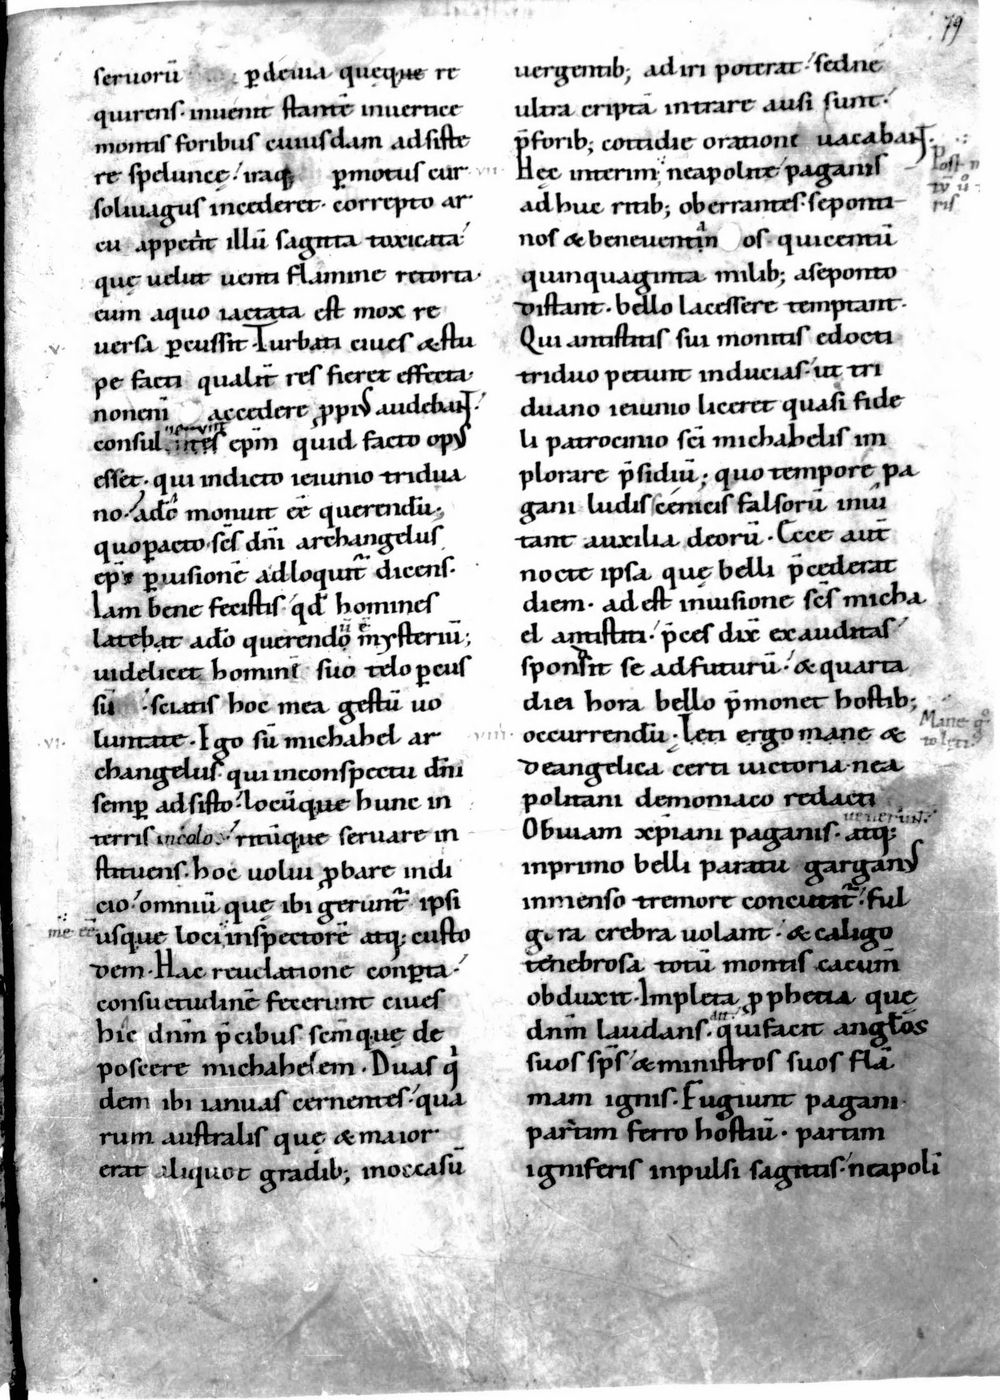 79
seruorū ꝑ deuia quęque re
quirens· inuenit stantē inuertice
montis foribus cuiusdam adsiste
re speluncę! itaq; ꝑmotus cur
soliuagus incederet· correpto ar
cu appetit illū sagitta toxicata·
quę uelut uenti flamine retorta·
eum aquo iactata est mox re
uersa ꝑcussit· Turbati ciues & stu
pe facti qualit̄ res fieret effecta·
nonenī accedere ꝓpiꝰ audebant!
consulentes ep̄m quid facto opꝰ
esset· qui indicto ieiunio tridua
no· ad̄o monuit eē querendū;
quopacto sc̄s dn̄i archangelus
ep̄m ꝑuisionē adloquit̄ dicens·
Iam bene fecistis· qđ homines
latebat ad̄o querendō mysteriū;
uidelicet hominē suo telo ꝑcus
sū· sciatis hoc mea gestū uo
luntate· Ego sū michahel ar
changelus· qui inconspectu dn̄i
semꝑ adsisto· locūque hunc in
terris incolas· ritūque seruare in
stituens· hoc uolui ꝓbare indi
cio· omniū quę ibi gerunt̄ ipsi
me eē
usque loci inspectorē atq; custo
dem· Hac reuelatione conꝑta·
consuetudinē fecerunt ciues
hic dn̄m p̄cibus sc̄mquę de
poscere michahelem· Duas q
dem ibi ianuas cernentes· qua
rum australis quę & maior
erat aliquot gradib; inoccasū
uergentib; adiri poterat· sedne
ultra criptā intrare ausi sunt·
p̄forib; cottidie oratione uacabant·
Hęc interim neapolitę paganis
adhuc ritib; oberrantes· seponti
nos & beneuentin os· quicentū
quinquaginta milib; aseponto
distant· bello lacessere temptant·
Qui antistitis sui monitis edocti
triduo petunt inducias· ut tri
duano ieiunio liceret quasi fide
li patrocinio sc̄i michahelis im
plorare p̄sidiū; quo tempore pa
gani ludis scenicis falsorū inui
tant auxilia deorū· Ecce aut̄
nocte ipsa quę belli p̄cederat
diem· adest inuisione sc̄s micha
el antistiti· p̄ces dix̄ exauditas·
sponsit se adfuturū· & quarta
diei hora bello p̄monet hostib;
occurrendū· Lęti ergo mane &
deangelica certi uictoria· nea
politani demoniaco redacti
uenerunt·
Obuiam xp̄iani paganis· atq;
inprimo belli paratu garganꝰ
inmenso tremore concutit̄· ful
gura crebra uolant· & caligo
tenebrosa totū montis cacum̄
obduxit· Impleta ꝓphetia quę
dn̄m laudans· quifacit anglōs
suos sp̄s· & ministros suos flā
mam ignis· Fugiunt pagani·
partim ferro hostiū· partim
igniferis inpulsi sagittis· neapoli